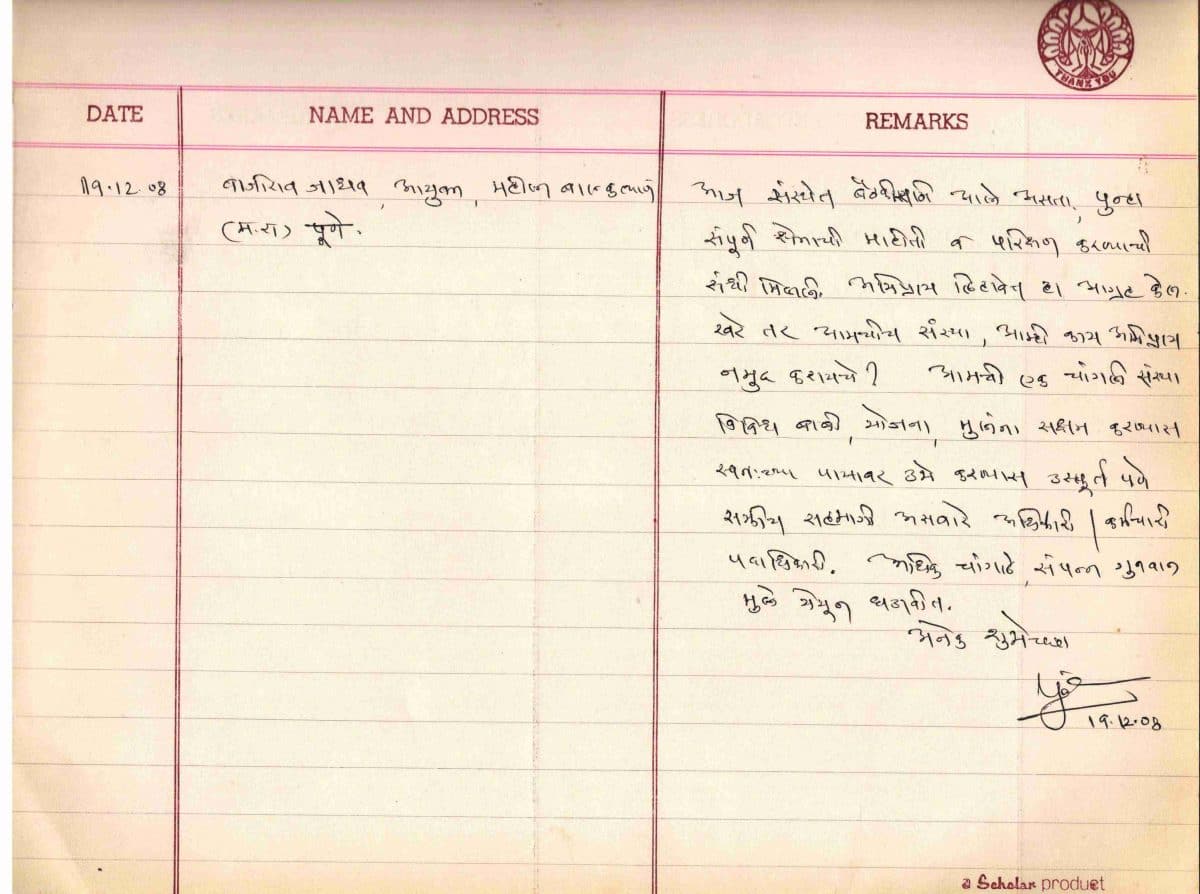 THANK YOU
DATE
NAME AND ADDRESS
REMARKS
19.12.08
बाजीराव जाधव, आयुक्त, महिला बालकल्याण
(म.रा) पूणे.
आज संस्थेत बैठकीसाठी आले असता, पुन्हा
संपूर्ण क्षेत्राची माहीती व परिक्षण करण्याची
संधी मिळाली. अभिप्राय लिहावेत हा आग्रह केला.
खरे तर आमचीच संस्था, आम्ही काय अभिप्राय
नमुद करायचे? आमची एक चांगली संस्था
विविध बाबी, योजना, मुलांना सक्षम करण्यास
स्वतःच्या पायावर उभे करण्यास उस्फूर्त पणे
सक्रीय सहभागी असणारे अधिकारी / कर्मचारी
पदाधिकारी. अधिक चांगले, संपन्न गुणवान
मुले येथून घडावीत.
अनेक शुभेच्छा
19.12.08
a Scholar product